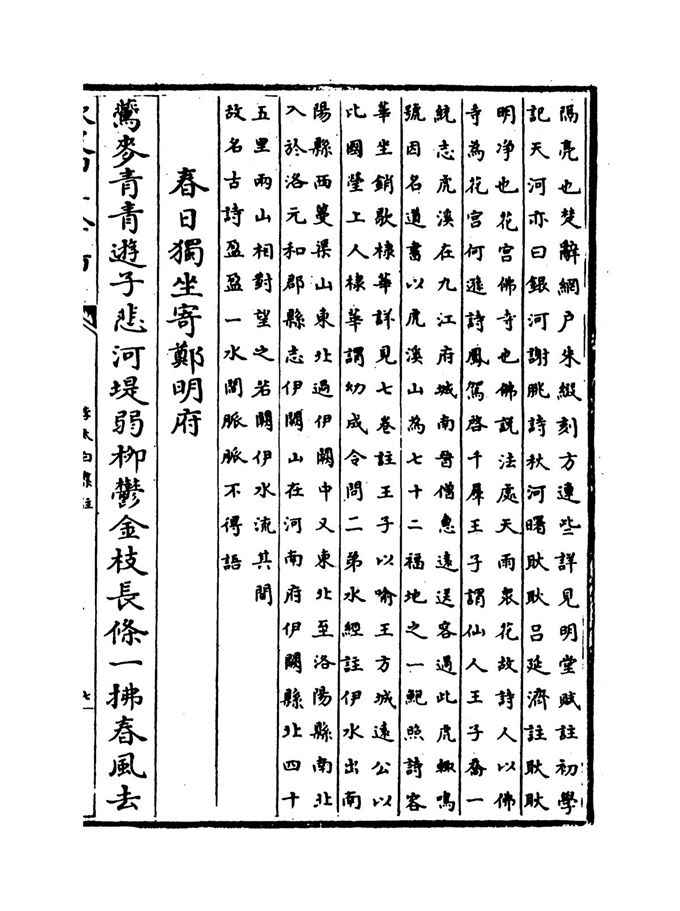 隔亮也楚辭網户朱綴刻方連些詳見明堂賦註初學
記天河亦曰銀河謝朓詩秋河曙耿耿吕延濟註耿耿
明净也花宫佛寺也佛説法處天雨衆花故詩人以佛
寺為花宫何遜詩鳳駕啓千羣王子謂仙人王子喬一
統志虎溪在九江府城南晋僧惠逺送客過此虎輙鳴
號因名道書以虎溪山為七十二福地之一鮑照詩容
華坐銷歇棣華詳見七卷註王子以喻王方城逺公以
比國瑩上人棣華謂幼成令問二弟水經註伊水出南
陽縣西蔓渠山東北過伊闕中又東北至洛陽縣南北
入於洛元和郡縣志伊闕山在河南府伊闕縣北四十
五里兩山相對望之若闕伊水流其間
故名古詩盈盈一水間脈脈不得語
春日獨坐寄鄭明府
鷰麥青青遊子悲河堤弱柳鬱金枝長條一拂春風去
李太白集註